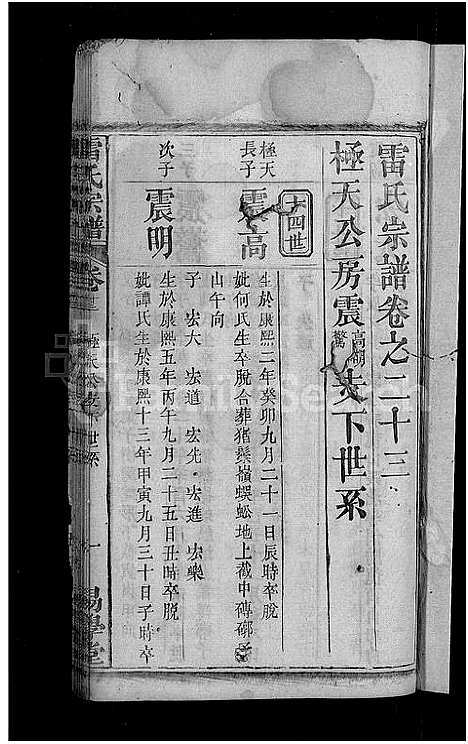 雷氏宗譜卷之二十三
極天公房震高朝驚支下世系
十四世
極天長子
震高
生於康熙二年癸卯九月二十一日辰時卒脫
妣何氏生卒脫合葬猪鬃嶺蜈蚣地上截中磚
山午向
子 宏大 宏道 宏先 宏進 宏樂
次子
震明
生於康熙五年丙午九月二十五日丑時卒脫
妣譚氏生於康熙十三年甲寅九月三十日子時卒
雷氏宗譜
卷
下世系
一